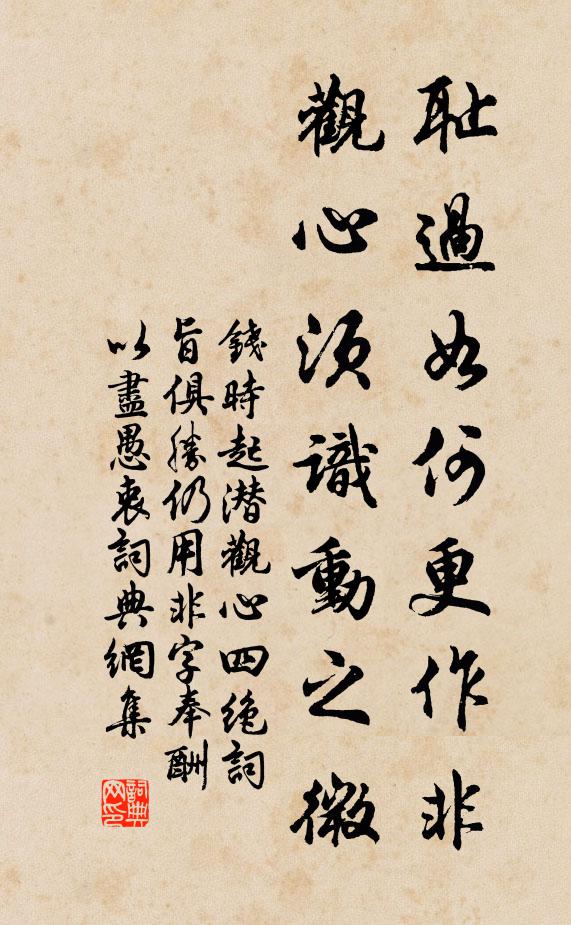 耻過如何更作非
觀心須識動之微
錢時起潛觀心四绝詞
旨俱勝仍用非字奉酬
以盡愚衷詞典網集
詞典
网印